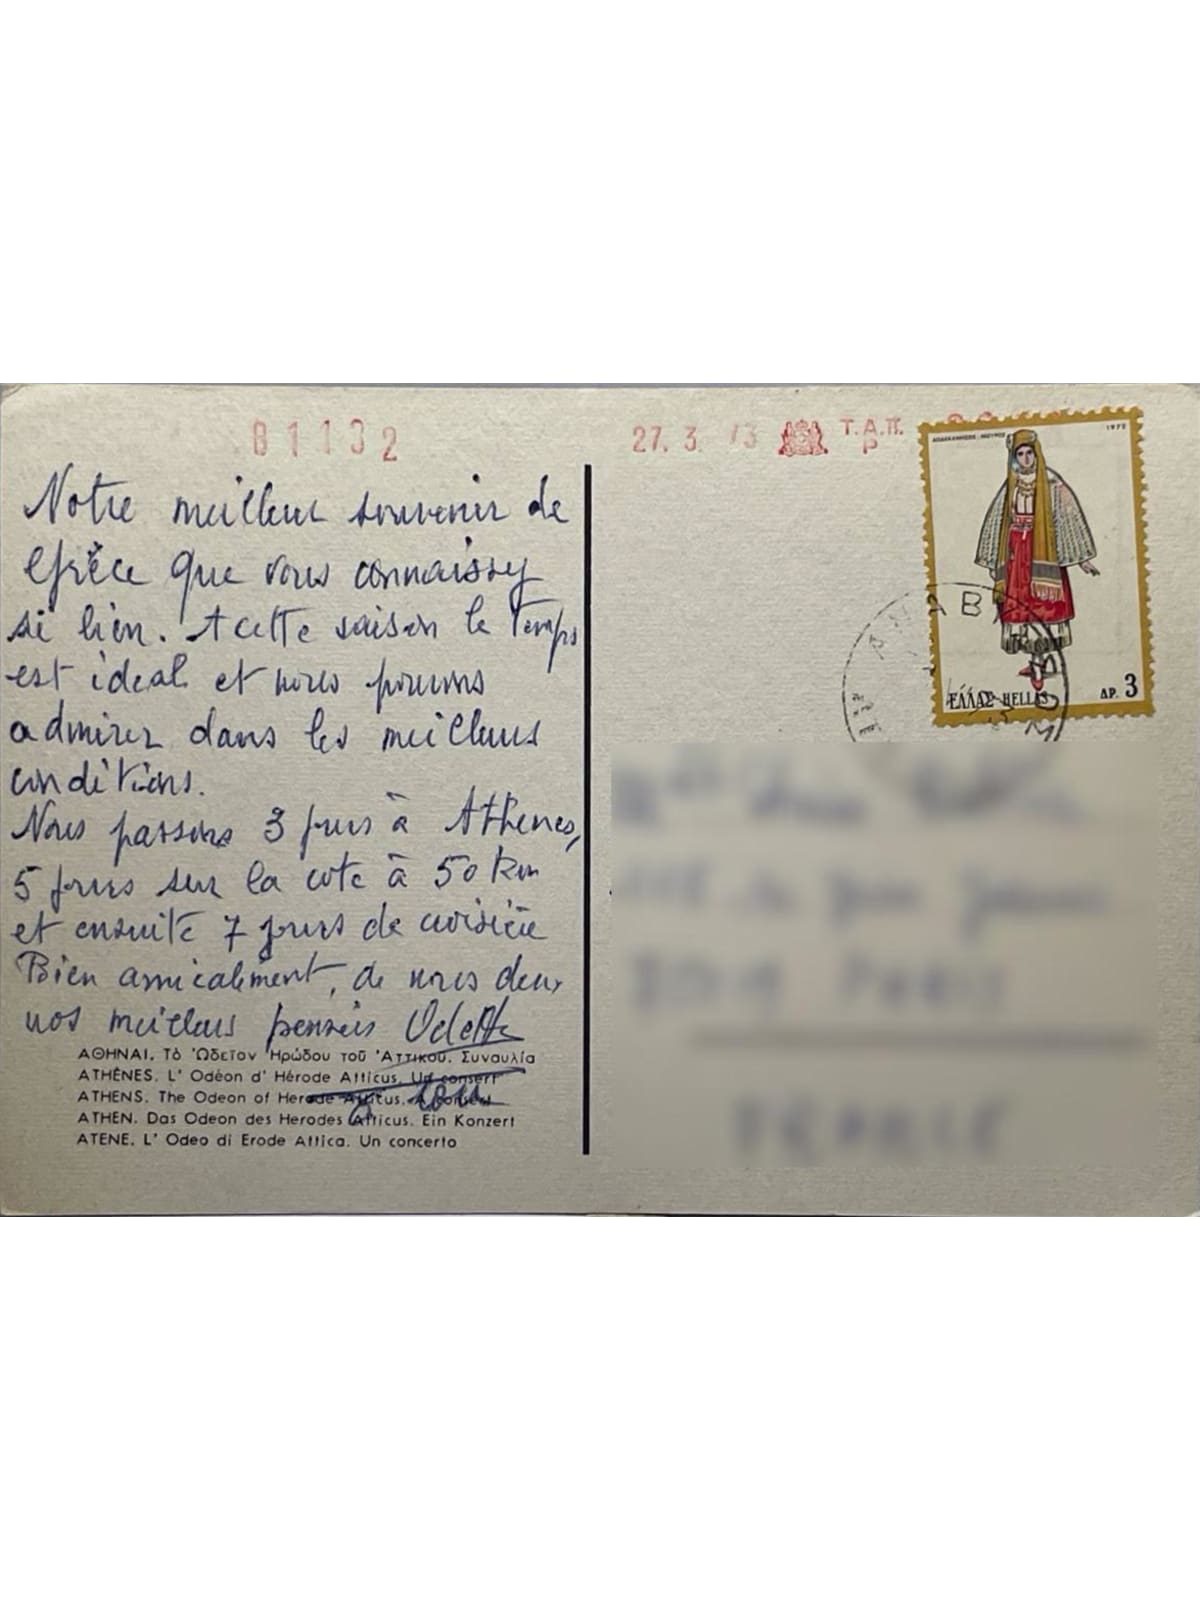 81132
27. 3. 73 Τ.Α.Π.
ΔΩΔΕΚΑΝΗΣΟΣ-ΝΙΣΥΡΟΣ 1972
ΕΛΛΑΣ-HELLAS ΔΡ. 3
Notre meilleur souvenir de
Grèce que vous connaissez
si bien. A cette saison le temps
est idéal et nous pouvons
admirer dans les meilleures
conditions.
Nous passons 3 jours à Athènes,
5 jours sur la côte à 50 km
et ensuite 7 jours de croisière
Bien amicalement, de nous deux
nos meilleures pensées Odette
ΑΘΗΝΑΙ. Τὸ Ὠδεῖον Ἡρώδου τοῦ Ἀττικοῦ. Συναυλία
ATHÈNES. L' Odéon d' Hérode Atticus. Un consert
ATHENS. The Odeon of Herode Atticus. A consert
ATHEN. Das Odeon des Herodes Atticus. Ein Konzert
ATENE. L' Odeo di Erode Attica. Un concerto